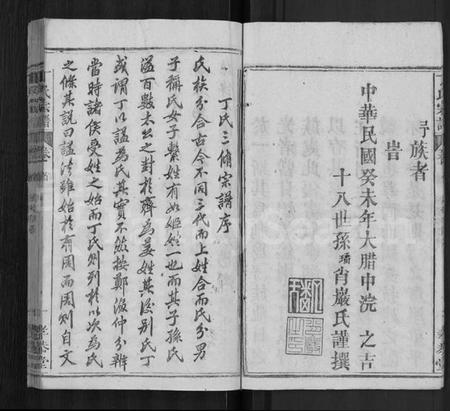 弓族者
旹
中華民國癸未年大腊中浣 之吉
十八世孫 肖巖氏謹撰
丁氏三脩宗譜序
氏族分合古今不同三代而上姓合而氏分男
子稱氏女子繫姓有如姬姓一也而其子孫氏
溢百數太公之封於齊為姜姓其後別氏丁
或謂丁以諡為氏其實不然按鄭漁仲分辨
當時諸侯受姓之始而丁氏則列於以次為氏
之條其說曰諡法雖始於有周而周則自文